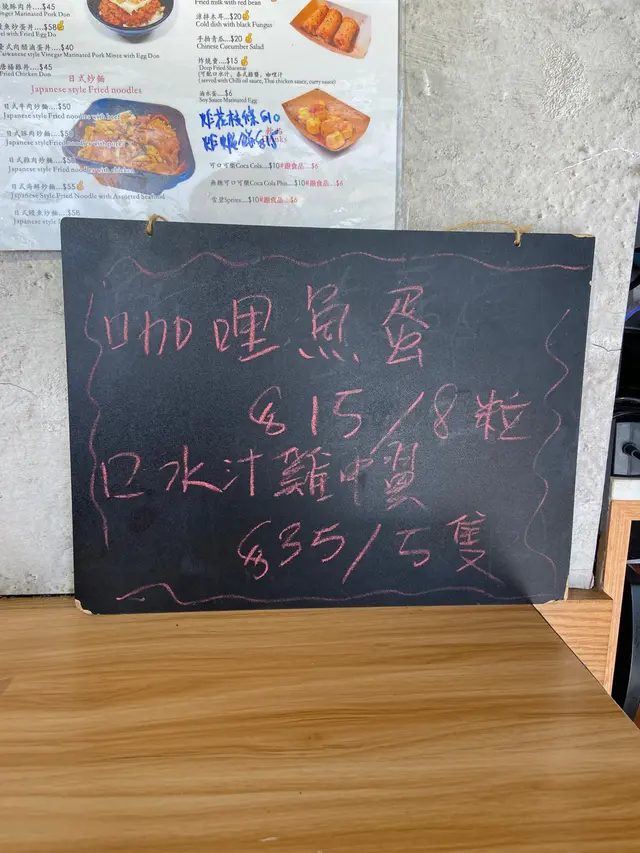 豬酥肉丼....$45
Vinegar Marinated Pork Don
魚炒蛋丼....$58
eel with Fried Egg Do
台式肉醋滷蛋丼....$40
Taiwanese style Vinegar Marinated Pork Mince with Egg Don
唐揚雞丼....$45
Fried Chicken Don
日式炒麵
Japanese style Fried noodles
日式牛肉炒麵....$50
Japanese style Fried noodles with beef
日式豚肉炒麵....$50
Japanese style Fried noodles with pork
日式雞肉炒麵....$50
Japanese style Fried noodles with chicken
日式海鮮炒麵....$55
Japanese Style Fried Noodle with Assorted Seafood
日式鰻魚炒麵....$58
Japanese style
Fried milk with red bean
涼拌木耳....$20
Cold dish with black Fungus
手拍青瓜....$20
Chinese Cucumber Salad
炸燒賣....$15
Deep Fried Shaomai
(可配口水汁、泰式雞醬、咖哩汁
( served with Chilli oil sauce, Thai chicken sauce, curry sauce)
滷水蛋....$6
Soy Sauce Marinated Egg
炸花枝條$10
可口可樂Coca Cola....$10#跟食品....$6
無糖可口可樂Coca Cola Plus....$10#跟食品....$6
雪碧Sprites....$10#跟食品....$6
咖哩魚蛋
$15/8粒
口水汁雞中翼
$35/5隻